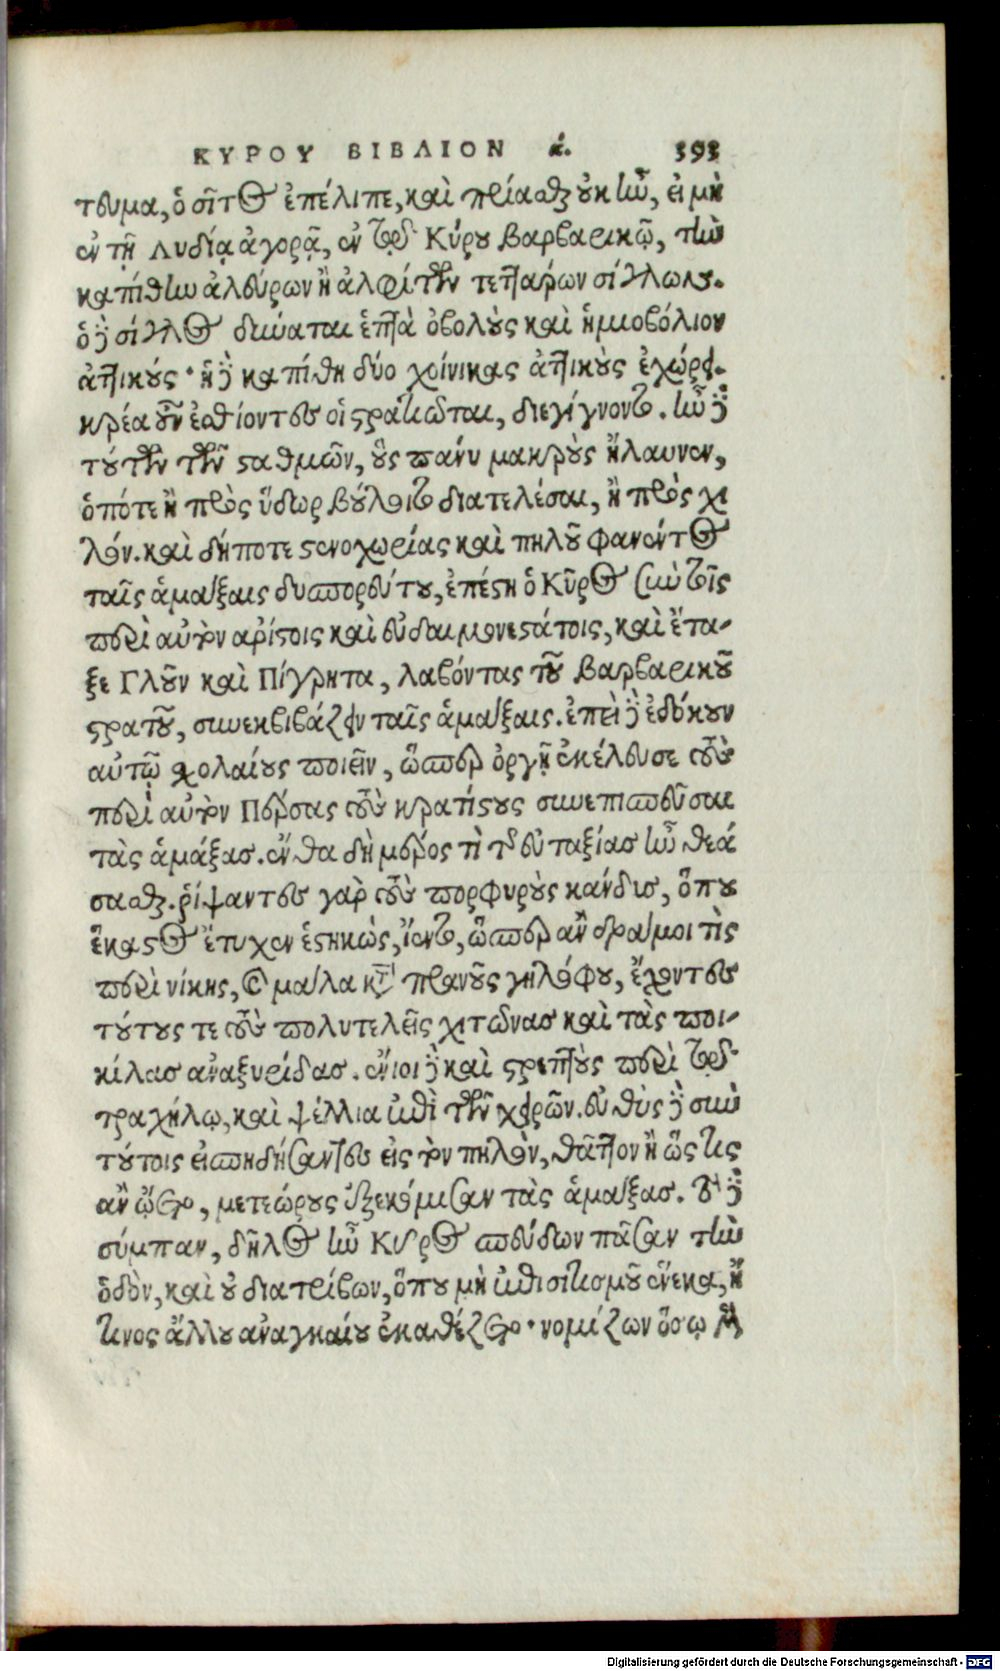 ΚΥΡΟΥ ΒΙΒΛΙΟΝ ά. 393
τευμα, ὁ σῖτος ἐπέλιπε, καὶ πρίασθαι οὐκ ἦν, εἰ μὴ
ἐν τῇ Λυδίᾳ ἀγορᾷ, ἐν τῷ Κύρου βαρβαρικῷ, τὴν
καπίθην ἀλεύρων ἢ ἀλφίτων τεττάρων σίγλων.
ὁ δὲ σίγλος δύναται ἑπτὰ ὀβολοὺς καὶ ἡμιοβόλιον
ἀττικούς· ἡ δὲ καπίθη δύο χοίνικας ἀττικοὺς ἐχώρει.
κρέα οὖν ἐσθίοντες οἱ στρατιῶται, διεγίγνοντο. ἦν δὲ
τούτων τῶν σταθμῶν, οὓς πάνυ μακροὺς ἤλαυνεν,
ὁπότε ἢ πρὸς ὕδωρ βούλοιτο διατελέσαι, ἢ πρὸς χι
λόν. καὶ δήποτε στενοχωρίας καὶ πηλοῦ φανέντος
ταῖς ἁμάξαις δυσπορεύτου, ἐπέστη ὁ Κῦρος σὺν τοῖς
περὶ αὐτὸν ἀρίστοις καὶ εὐδαιμονεστάτοις, καὶ ἔτα-
ξε Γλοῦν καὶ Πίγρητα, λαβόντας τοῦ βαρβαρικοῦ
στρατοῦ, συνεκβιβάζειν ταῖς ἁμάξαις. ἐπεὶ δὲ ἐδόκουν
αὐτῷ σχολαίους ποιεῖν, ὥσπερ ὀργῇ ἐκέλευσε τοὺς
περὶ αὐτὸν Πέρσας τοὺς κρατίστους συνεπισπεῦσαι
τὰς ἁμάξας. ἔνθα δὴ μέρος τὶ τῆς εὐταξίας ἦν θεά
σασθαι. ῥίψαντες γὰρ τοὺς πορφυροὺς κάνδις, ὅπου
ἕκαστος ἔτυχεν ἑστηκώς, ἵεντο, ὥσπερ ἂν δράμοι τὶς
περὶ νίκης, καὶ μάλα κατὰ πρανοῦς γηλόφου, ἔχοντες
τούτους τε τοὺς πολυτελεῖς χιτῶνας καὶ τὰς ποι-
κίλας ἀναξυρίδας. ἔνιοι δὲ καὶ στρεπτοὺς περὶ τῷ
τραχήλῳ, καὶ ψέλλια ἐπὶ τῶν χειρῶν. εὐθὺς δὲ σὺν
τούτοις εἰσπηδήσαντες εἰς τὸν πηλὸν, θᾶττον ἢ ὥς τις
ἂν ᾤετο, μετεώρους ἐξεκόμισαν τὰς ἁμάξας. τὸ δὲ
σύμπαν, δῆλος ἦν Κῦρος σπεύδων πᾶσαν τὴν
ὁδὸν, καὶ οὐ διατρίβων, ὅπου μὴ ἐπισιτισμοῦ ἕνεκα, ἤ
τινος ἄλλου ἀναγκαίου ἐκαθέζετο· νομίζων ὅσῳ μὲν
Digitalisierung gefördert durch die Deutsche Forschungsgemeinschaft - DFG